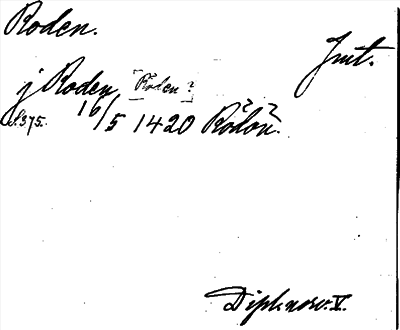 Roden.
Jnt.
j Roden [Röden?]
N. 375. 16/5 1420 Rödon.
Dipl. norv. V.